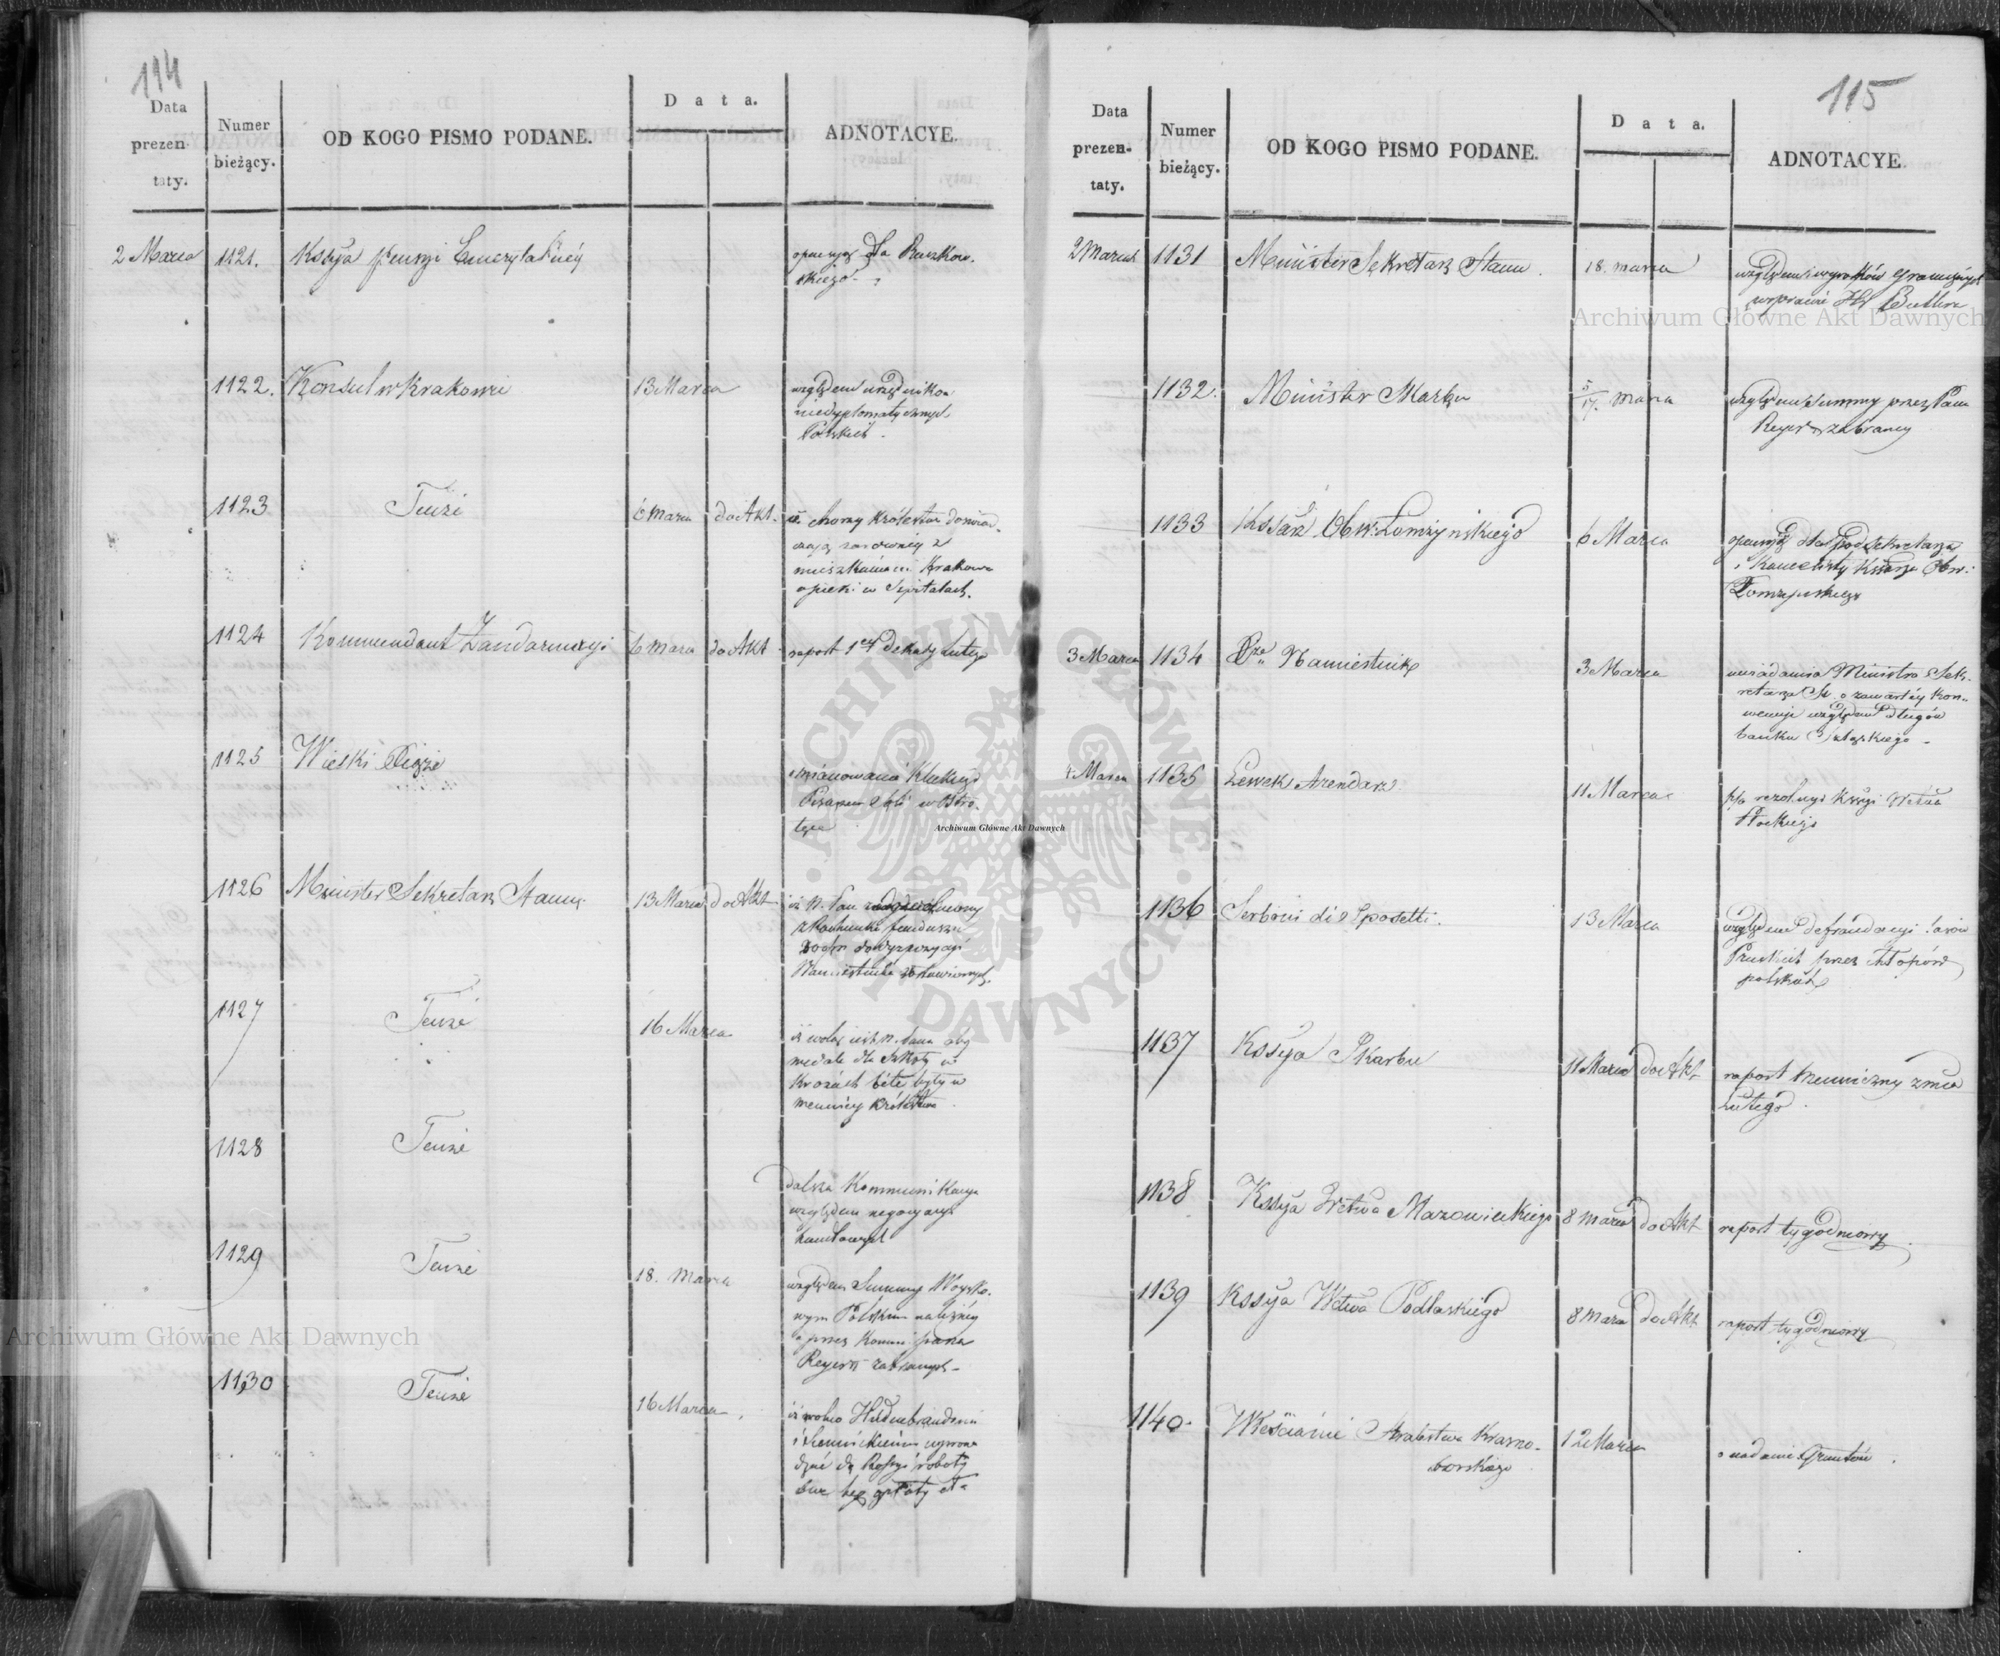 114
Data
prezen-
taty.
Numer
bieżący.
OD KOGO PISMO PODANE.
Data.
ADNOTACYE.
2 Marca 1121. Kssya pensyi Emerytalnéy
opensyą dla Ruszkow.
skiego
1122. Konsul w Krakowie 13 Marca
względem urzędników
niedyplomatycznych
Polskich
1123 Tenże 6 Marca do Akt.
iż chorzy Królestwa doświad-
czają zarówniey z
mieszkańcami Krakowa
opieki w Szpitalach.
1124 Kommendant Żandarmeryi 6 Marca do Akt
raport 1ey dekady Lutego
1125 Wielki Xiąże
mianowania
Pisarzem w Ostro-
łęce
1126 Minister Sekretarz Stanu 13 Marca do Akt
iż N. Pan
z Rachunku funduszu
Namiestnika zostawionych.
1127 Tenże 16 Marca
iż wolą jest N. Pana aby
medale dla Szkoły w
Krożach bite były w
mennicy Królestwa
1128 Tenże
dalsza Kommunikacya
względem negocyacyi
handlowych
1129 Tenże 18. Marca
względem Summy Woysko-
wym Polskim należnéy
a przez Pana
Reyera zabranych
1130 Tenże 16 Marca
iż wolno Hildenbrandowi
do Rossyi roboty
bez opłaty
115
Data
prezen-
taty.
Numer
bieżący.
OD KOGO PISMO PODANE.
Data.
ADNOTACYE.
2 Marca 1131 Minister Sekretarz Stanu. 18. marca
względem wyroków granicznych
w sprawie Hr. Butlera
1132. Minister Skarbu 5/17. marca
względem Summy przez Pana
Reyera zabraney
1133 Kssarz Obw: Łomżyńskiego 6 Marca
opensyą dla podsekretarza
i Kancelisty Kssarza Obw:
Łomżyńskiego
3 Marca 1134 Xże Namiestnik 3 Marca
uwiadamia Ministra Sek-
retarza St. o zawartéy Kon-
wencyi względem długów
banku Pruskiego
4 Marca 1135 Lewek Arendarz 11 Marca
p/o rezolucyi Kssyi Wdztwa
Płockiego
1136 Serboni di Sposetti. 13 Marca
względem defraudacyi lasów
Pruskich przez chłopów
polskich
1137 Kssya Skarbu 11 Marca do Akt
raport menniczny z mca
Lutego.
1138 Kssya Wdztwa Mazowieckiego 8 marca do Akt
raport tygodniowy.
1139 Kssya Wdztwa Podlaskiego 8 marca do Akt
raport tygodniowy
1140. Włościanie Starostwa Krasno-
borskiego 12 Marca
o nadanie Gruntów.
Archiwum Główne Akt Dawnych
Archiwum Główne Akt Dawnych
Archiwum Główne Akt Dawnych
ARCHIWUM GŁÓWNE AKT DAWNYCH